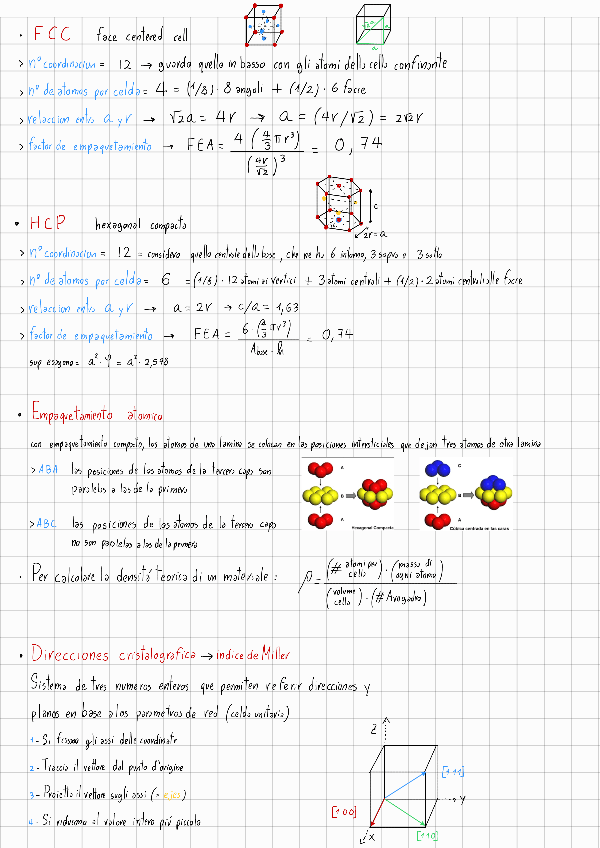 • FCC face centered cell
a
> n° coordinacion = 12 → guarda quella in basso con gli atomi della cella confinante
> n° de atomos por celda = 4 = (1/8)·8 angoli + (1/2)·6 facce
> relaccion entre a y r → √2a = 4r → a = (4r/√2) = 2√2r
> factor de empaquetamiento → FEA = 4(4/3 πr³) / (4r/√2)³ = 0,74
c
2r=a
• HCP hexagonal compacta
> n° coordinacion = 12 = considera quella centrale della base, che ne ha 6 intorno, 3 sopra e 3 sotto
> n° de atomos por celda = 6 = (1/6)·12 atomi ai vertici + 3 atomi centrali + (1/2)·2 atomi centrali alle facce
> relaccion entre a y r → a = 2r → c/a = 1,63
> factor de empaquetamiento → FEA = 6(4/3 πr³) / Abase·h = 0,74
sup esagono = a²·φ = a²·2,598
• Empaquetamiento atomico
con empaquetamiento compacto, los atomos de una lamina se colocan en las posiciones intersticiales que dejan tres atomos de otra lamina
> ABA las posiciones de los atomos de la tercera capa son
paralelas a las de la primera
>ABC las posiciones de los atomos de la tercera capa
no son paralelas a las de la primera
A
B
A
Hexagonal Compacta
C
B
A
Cúbica centrada en las caras
• Per calcolare la densità teorica di un materiale: ρ = (# atomi per cella)·(massa di ogni atomo) / (volume cella)·(# Avogadro)
• Direcciones cristalografica → indice de Miller
Sistema de tres numeros enteros que permiten referir direcciones y
planos en base a los parametros de red (celda unitaria)
1- Si fissano gli assi delle coordinate
2- Traccia il vettore dal punto d'origine
3- Proietta il vettore sugli assi (= ejes)
4- Si riducono al valore intero più piccolo
Z
[111]
Y
[100]
X
[110]